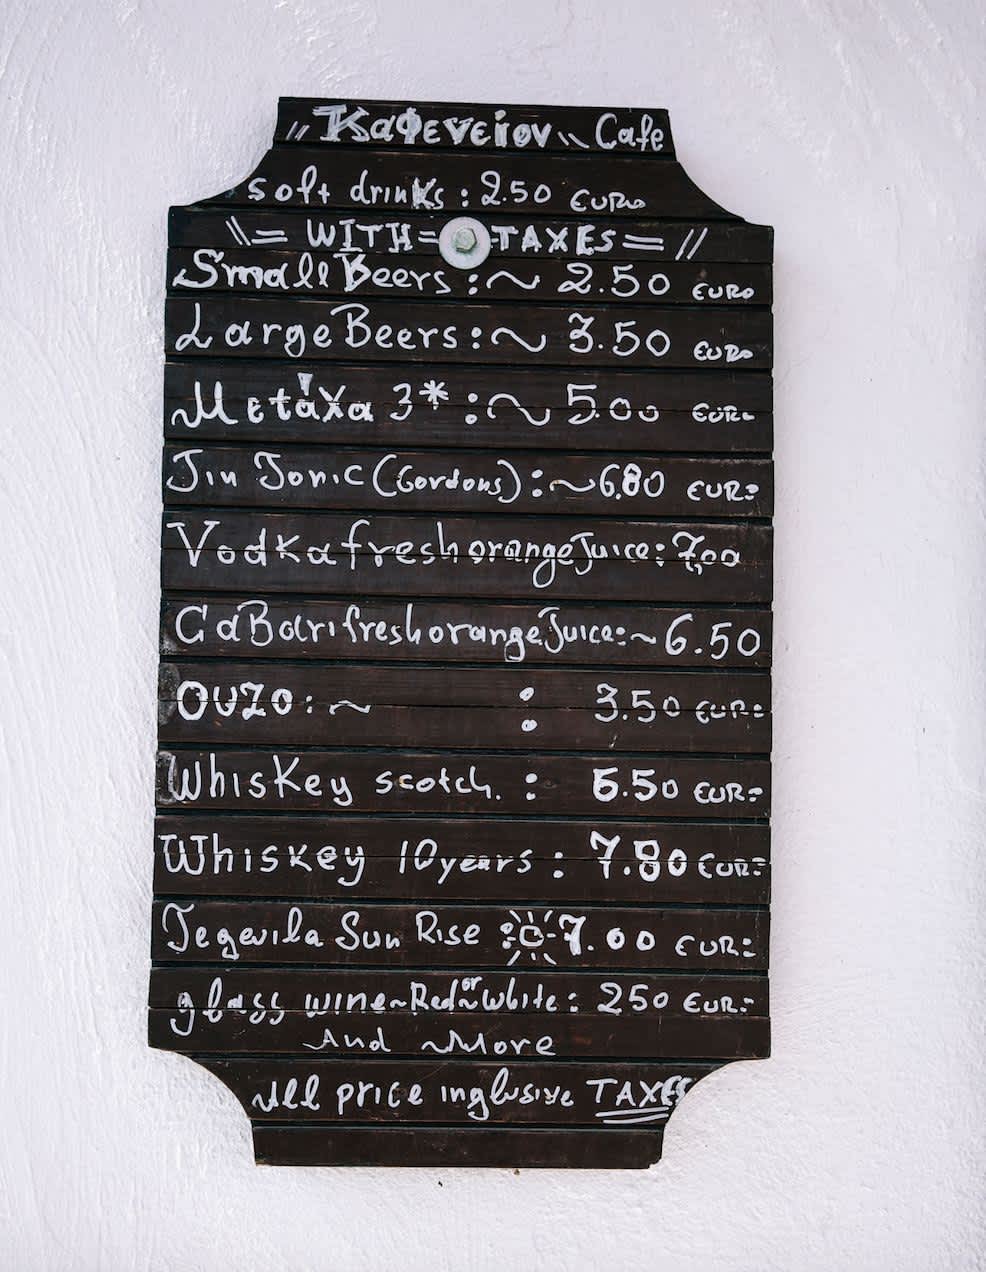 "Καφενείον" Cafe
soft drinks : 2.50 EURO
\\= WITH= =TAXES= //
Small Beers :~ 2.50 EURO
Large Beers :~ 3.50 EURO
Metáxa 3* :~ 5.00 EUR-
Jin Tonic (Gordons) :~6.80 EUR=
Vodka fresh orange Juice: 7,00
CaBari fresh orange Juice:~ 6.50
OUZO:~ : 3.50 EUR=
Whiskey scotch. : 6.50 EUR=
Whiskey 10years : 7.80 EUR=
Tegevila Sun Rise : 7.00 EUR=
glass wine~Red or White : 250 EUR=
And More
All price inglusive TAXES